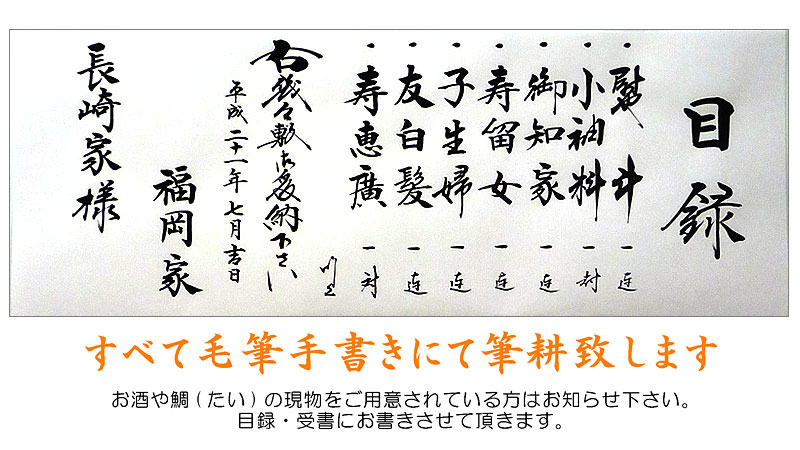 目録
一 熨斗 一連
一 小袖料 一封
一 御知家 一連
一 寿留女 一連
一 子生婦 一連
一 友白髪 一連
一 寿恵廣 一対
以上
右幾久敷御受納下さい
平成二十一年七月吉日
福岡家
長崎家様
すべて毛筆手書きにて筆耕致します
お酒や鯛(たい)の現物をご用意されている方はお知らせ下さい。
目録・受書にお書きさせて頂きます。